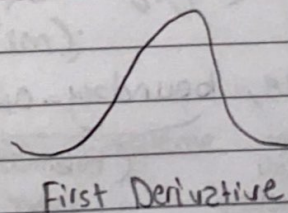 First Derivative